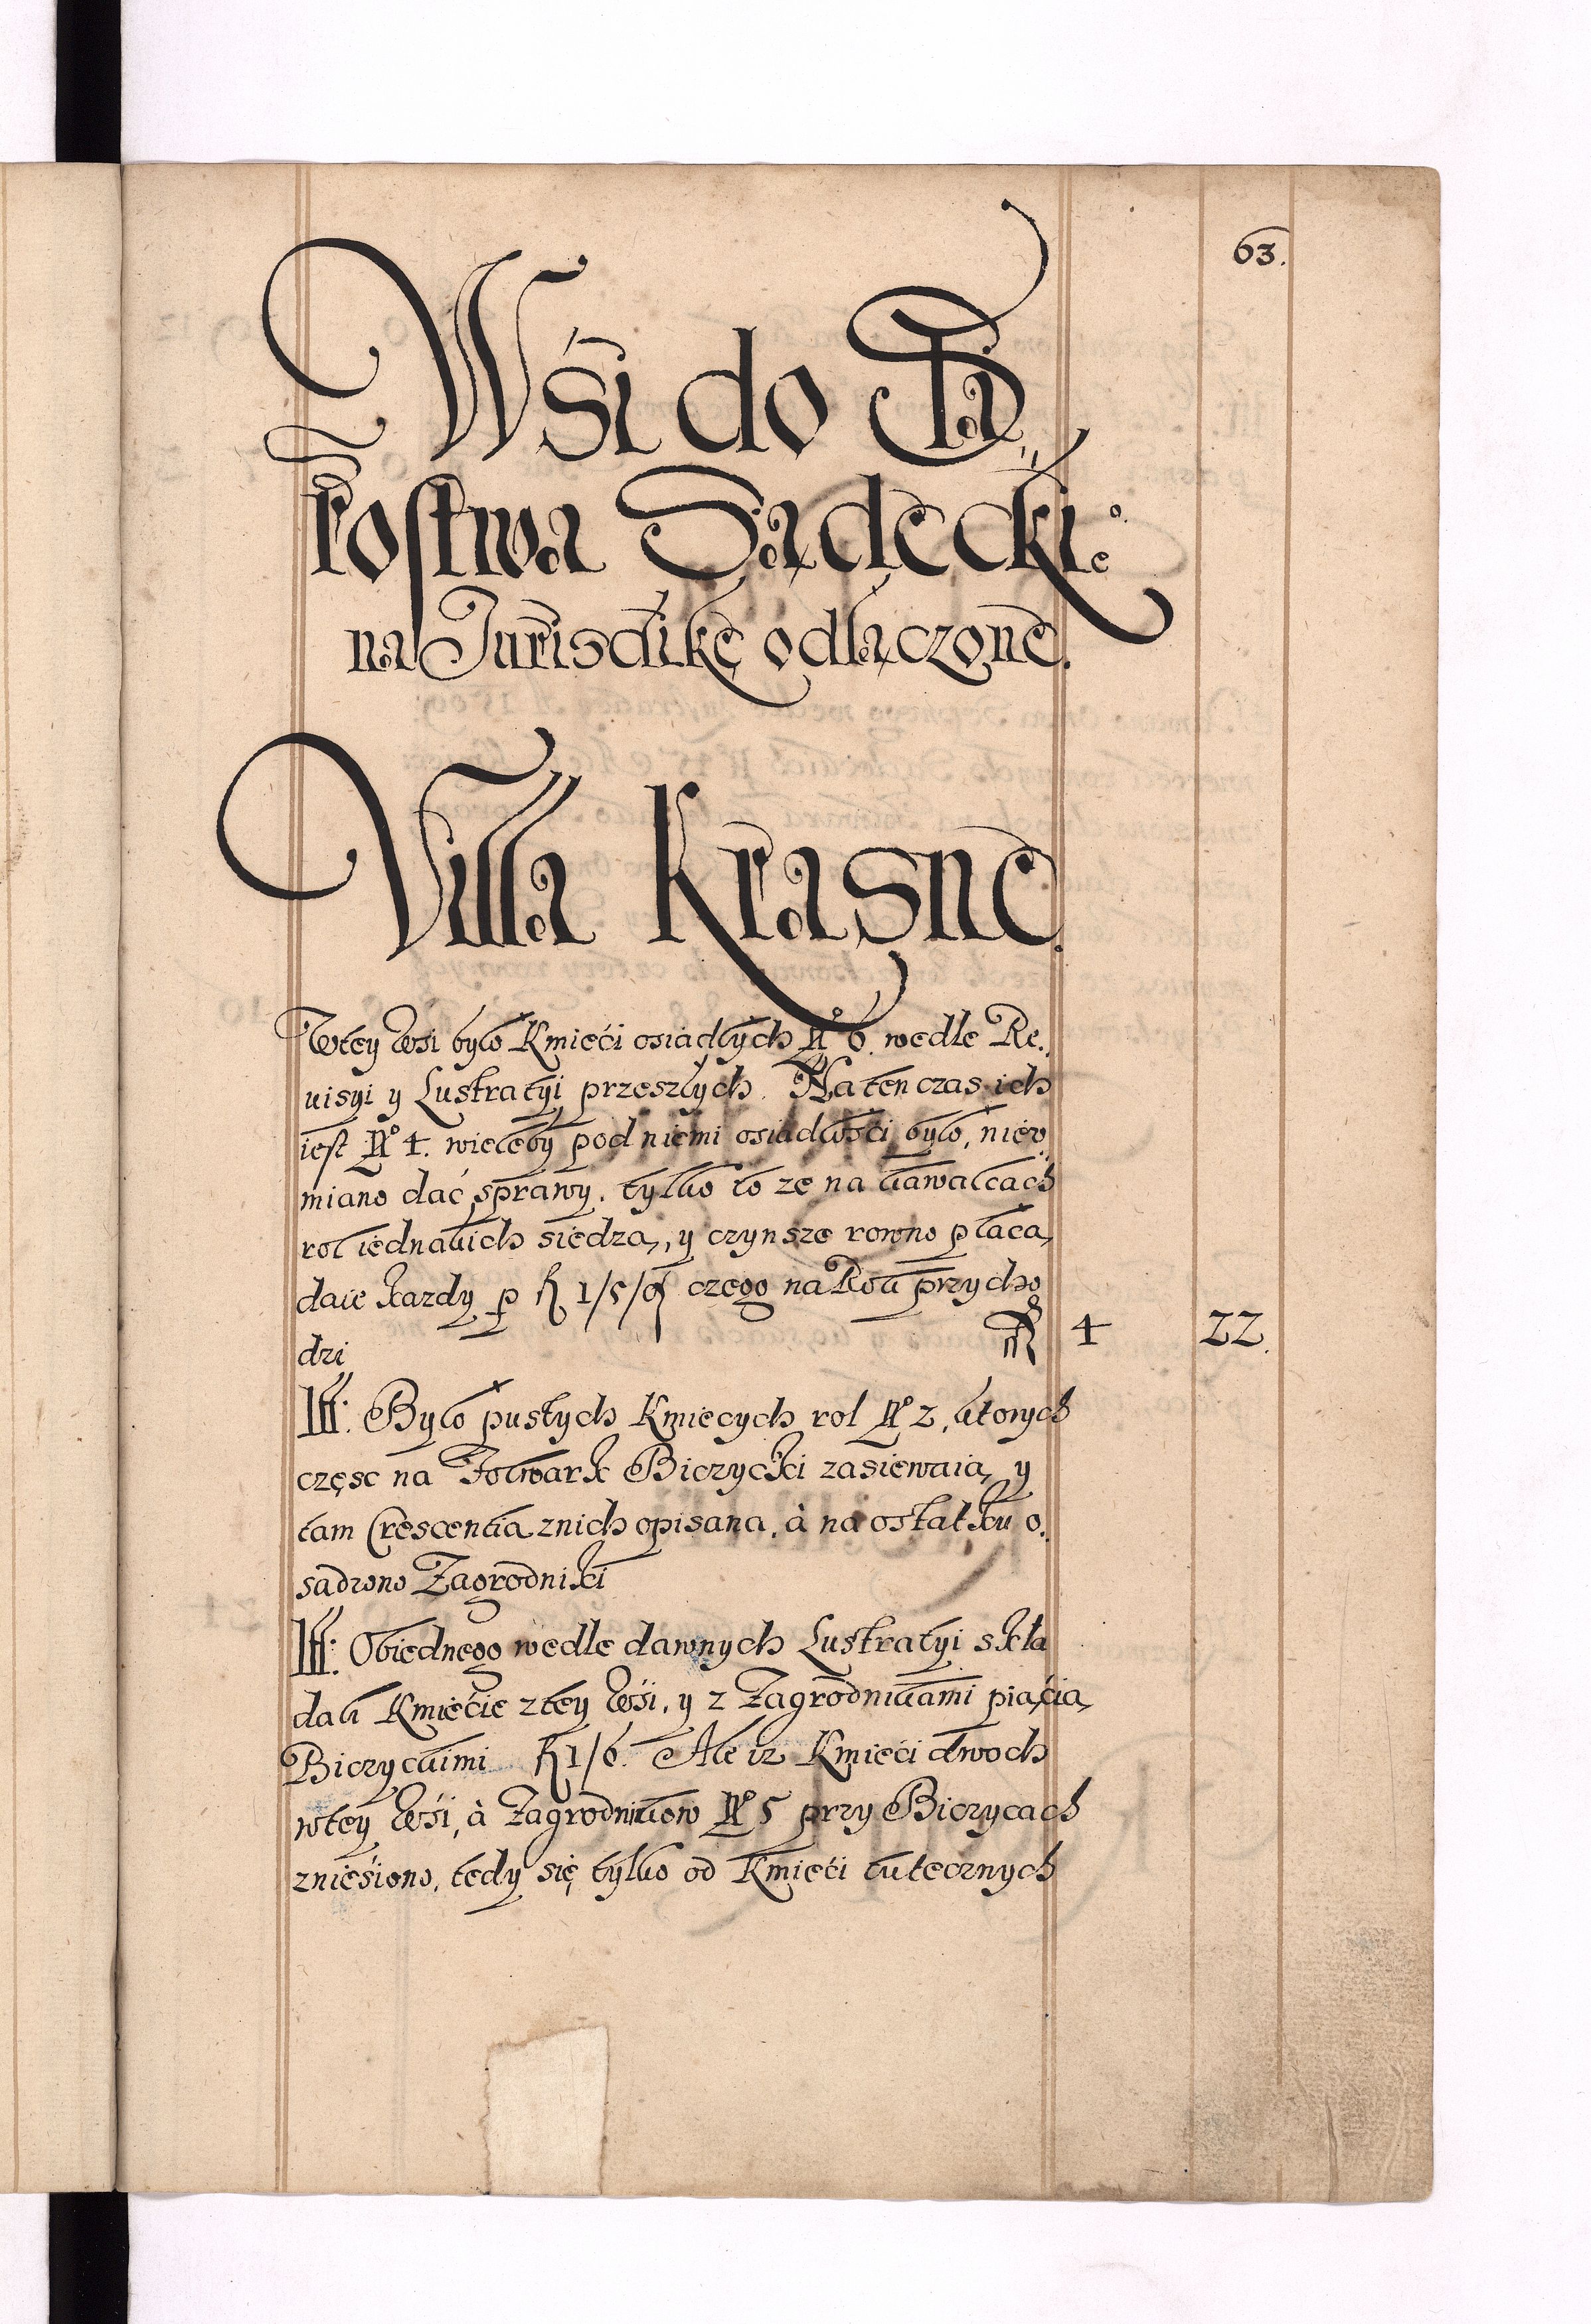 63.
Wśi do Sta,,
rostwa Sądeckie°
na Jurisdikę odłączone.
Villa Krasne.
Wtey Wsi było Kmieći osiadłych N° 6. wedle Re,
uisyi y Lustratyi przeszłych. Na ten czas ich
iest N° 4. wieleby pod niemi osiadłośći było, nieu,
miano dać sprawy, tylko to ze na kawalcach
rol iednakich siedzą, y czynsze rowno płacą,
daie kazdy p 1/5/9 czego na Rok przycho,
dzi 4 22.
Itt: Było pustych Kmiecych rol N° 2, ktorych
częsc na Folwark Biczycki zasiewaią, y
tam Crescentia znich opisana, à na ostatku o,
sadzono Zagrodniki
Itt: Obiednego wedle dawnych Lustratyi skła
dali Kmiećie ztey Wśi, y z Zagrodnikami piąćią
Biczyckimi 1/6. Ale iz Kmieći dwoch
wtey Wśi, à Zagrodnikow N° 5 przy Biczycach
znieśiono, tedy się tylko od Kmieći tutecznych